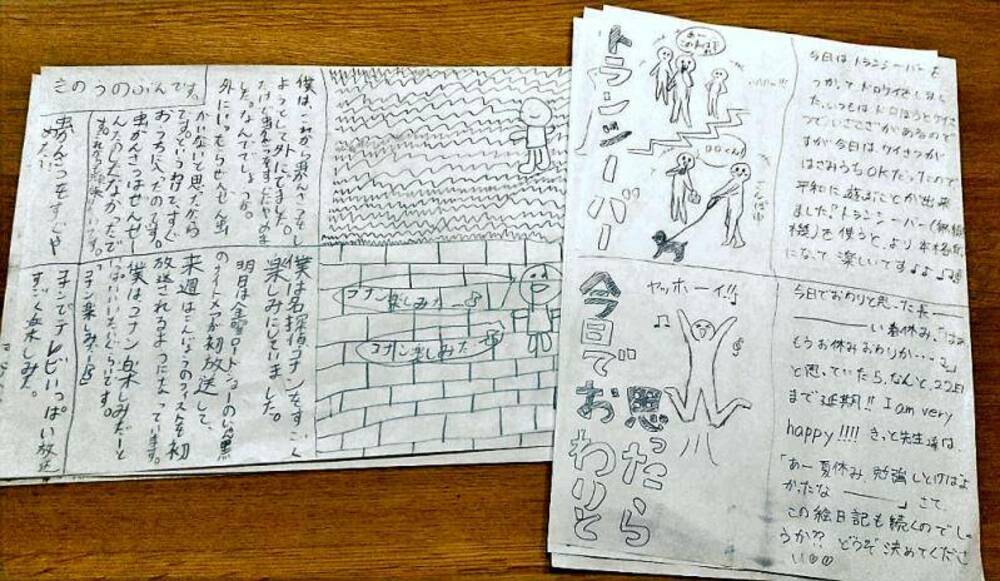 きのうのぶんです。
ようとして外にでました。
外にいっても
がいないと思ったから
です。というわけで、すぐ
おうちに入ったのです。
虫かんさつはぜんぜー
んたのしくなかったで
虫かんさつをすぐや
めた
僕は名探偵コナンをすごく
楽しみにしていました。
明日は金曜ロードショーの
が初放送して、
来週は
放送されるようになっています。
僕はコナン楽しみだーと
いっぱいいいたいぐらいです。
「コナン楽しみー
コナンでテレビいっぱい放送
すっごく楽しみた。
コナン楽しみだー
コナン楽しみだー
トランシーバー
あー
今日は、トランシーバーを
つかってドロケイをしまし
た。いつもはドロぼうとケイさ
つで、いざこざがあるので
すが今日は、ケイさつが
はさみうちOKだったので
平和に遊ぶことが出来
ました?トランシーバー(無線
機)を使うと、より本格的
になって楽しいですよ
今日でおわりと
思ったら
ヤッホーイ!!
今日でおわりと思った長――
――い春休み。「はあ
もうお休みおわりか……。」
と思っていたら、なんと、22日
まで延期!! I am very
happy!!!! きっと先生達は、
「あー夏休み、勉強しとけばよ
かったな――」さて、
この絵日記も続くのでしょ
うか?? どうぞ決めてくださ
い